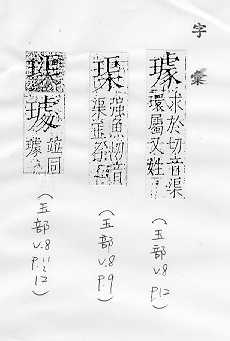 字彙
璩 求於切音渠
環屬又姓
(玉部 v.8 p.12)
璖 強魚切音
渠
(玉部 v.8 p.9)
璖
璩 並同
(玉部 v.8 p.11~12)